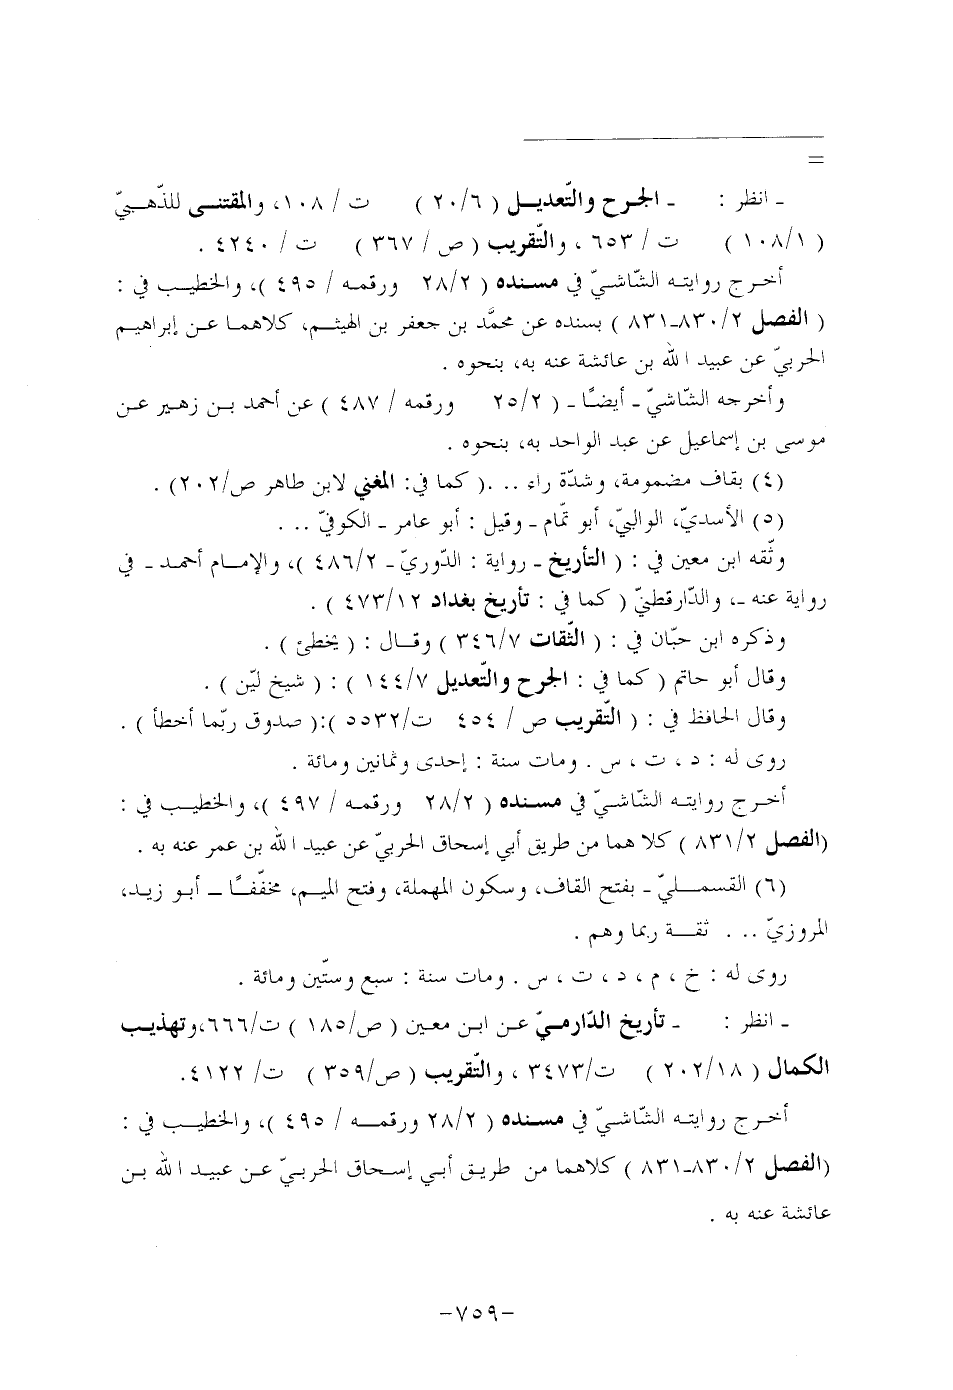 =
ـ انظر : ـ الجرح والتّعديل ( ٢٠/٦ ) ت / ١٠٨، والمقتنى للذّهبيّ
( ١٠٨/١ ) ت / ٦٥٣ ، والتّقريب ( ص / ٣٦٧ ) ت / ٤٢٤٠ .
أخرج روايته الشّاشيّ في مسنده ( ٢٨/٢ ورقمه / ٤٩٥ )، والخطيب في :
( الفصل ٨٣٠/٢ـ٨٣١ ) بسنده عن محمَّد بن جعفر بن الهيثم، كلاهما عن إبراهيم
الحربيّ عن عبيد الله بن عائشة عنه به، بنحوه .
وأخرجه الشّاشيّ ـ أيضًا ـ ( ٢٥/٢ ورقمه / ٤٨٧ ) عن أحمد بن زهير عن
موسى بن إسماعيل عن عبد الواحد به، بنحوه .
(٤) بقاف مضمومة، وشدّة راء .. .( كما في: المغني لابن طاهر ص/٢٠٢) .
(٥) الأسديّ، الوالبيّ، أبو تمّام ـ وقيل : أبو عامر ـ الكوفيّ .. .
وثّقه ابن معين في : ( التأريخ ـ رواية : الدّوريّ ـ ٤٨٦/٢ )، والإمام أحمد ـ في
رواية عنه ـ، والدّارقطنيّ ( كما في : تأريخ بغداد ٤٧٣/١٢ ) .
وذكره ابن حبّان في : ( الثّقات ٣٤٦/٧ ) وقال : ( يخطئ ) .
وقال أبو حاتم ( كما في : الجرح والتّعديل ١٤٤/٧ ) : ( شيخ ليّن ) .
وقال الحافظ في : ( التّقريب ص / ٤٥٤ ت/٥٥٣٢ ):( صدوق ربّما أخطأ ) .
روى له : د ، ت ، س . ومات سنة : إحدى وثمانين ومائة .
أخرج روايته الشّاشيّ في مسنده ( ٢٨/٢ ورقمه / ٤٩٧ )، والخطيب في :
(الفصل ٨٣١/٢ ) كلا هما من طريق أبي إسحاق الحربيّ عن عبيد الله بن عمر عنه به .
(٦) القسمليّ ـ بفتح القاف، وسكون المهملة، وفتح الميم، مخفّفًا ـ أبو زيد،
المروزيّ .. . ثقة ربما وهم .
روى له : خ ، م ، د ، ت ، س . ومات سنة : سبع وستّين ومائة .
ـ انظر : ـ تأريخ الدّارميّ عن ابن معين ( ص/١٨٥ ) ت/٦٦٦،وتهذيب
الكمال ( ٢٠٢/١٨ ) ت/٣٤٧٣ ، والتّقريب ( ص/٣٥٩ ) ت/ ٤١٢٢.
أخرج روايته الشّاشيّ في مسنده ( ٢٨/٢ ورقمه / ٤٩٥ )، والخطيب في :
(الفصل ٨٣٠/٢ـ٨٣١ ) كلاهما من طريق أبي إسحاق الحربيّ عن عبيد الله بن
عائشة عنه به .
–٧٥٩–